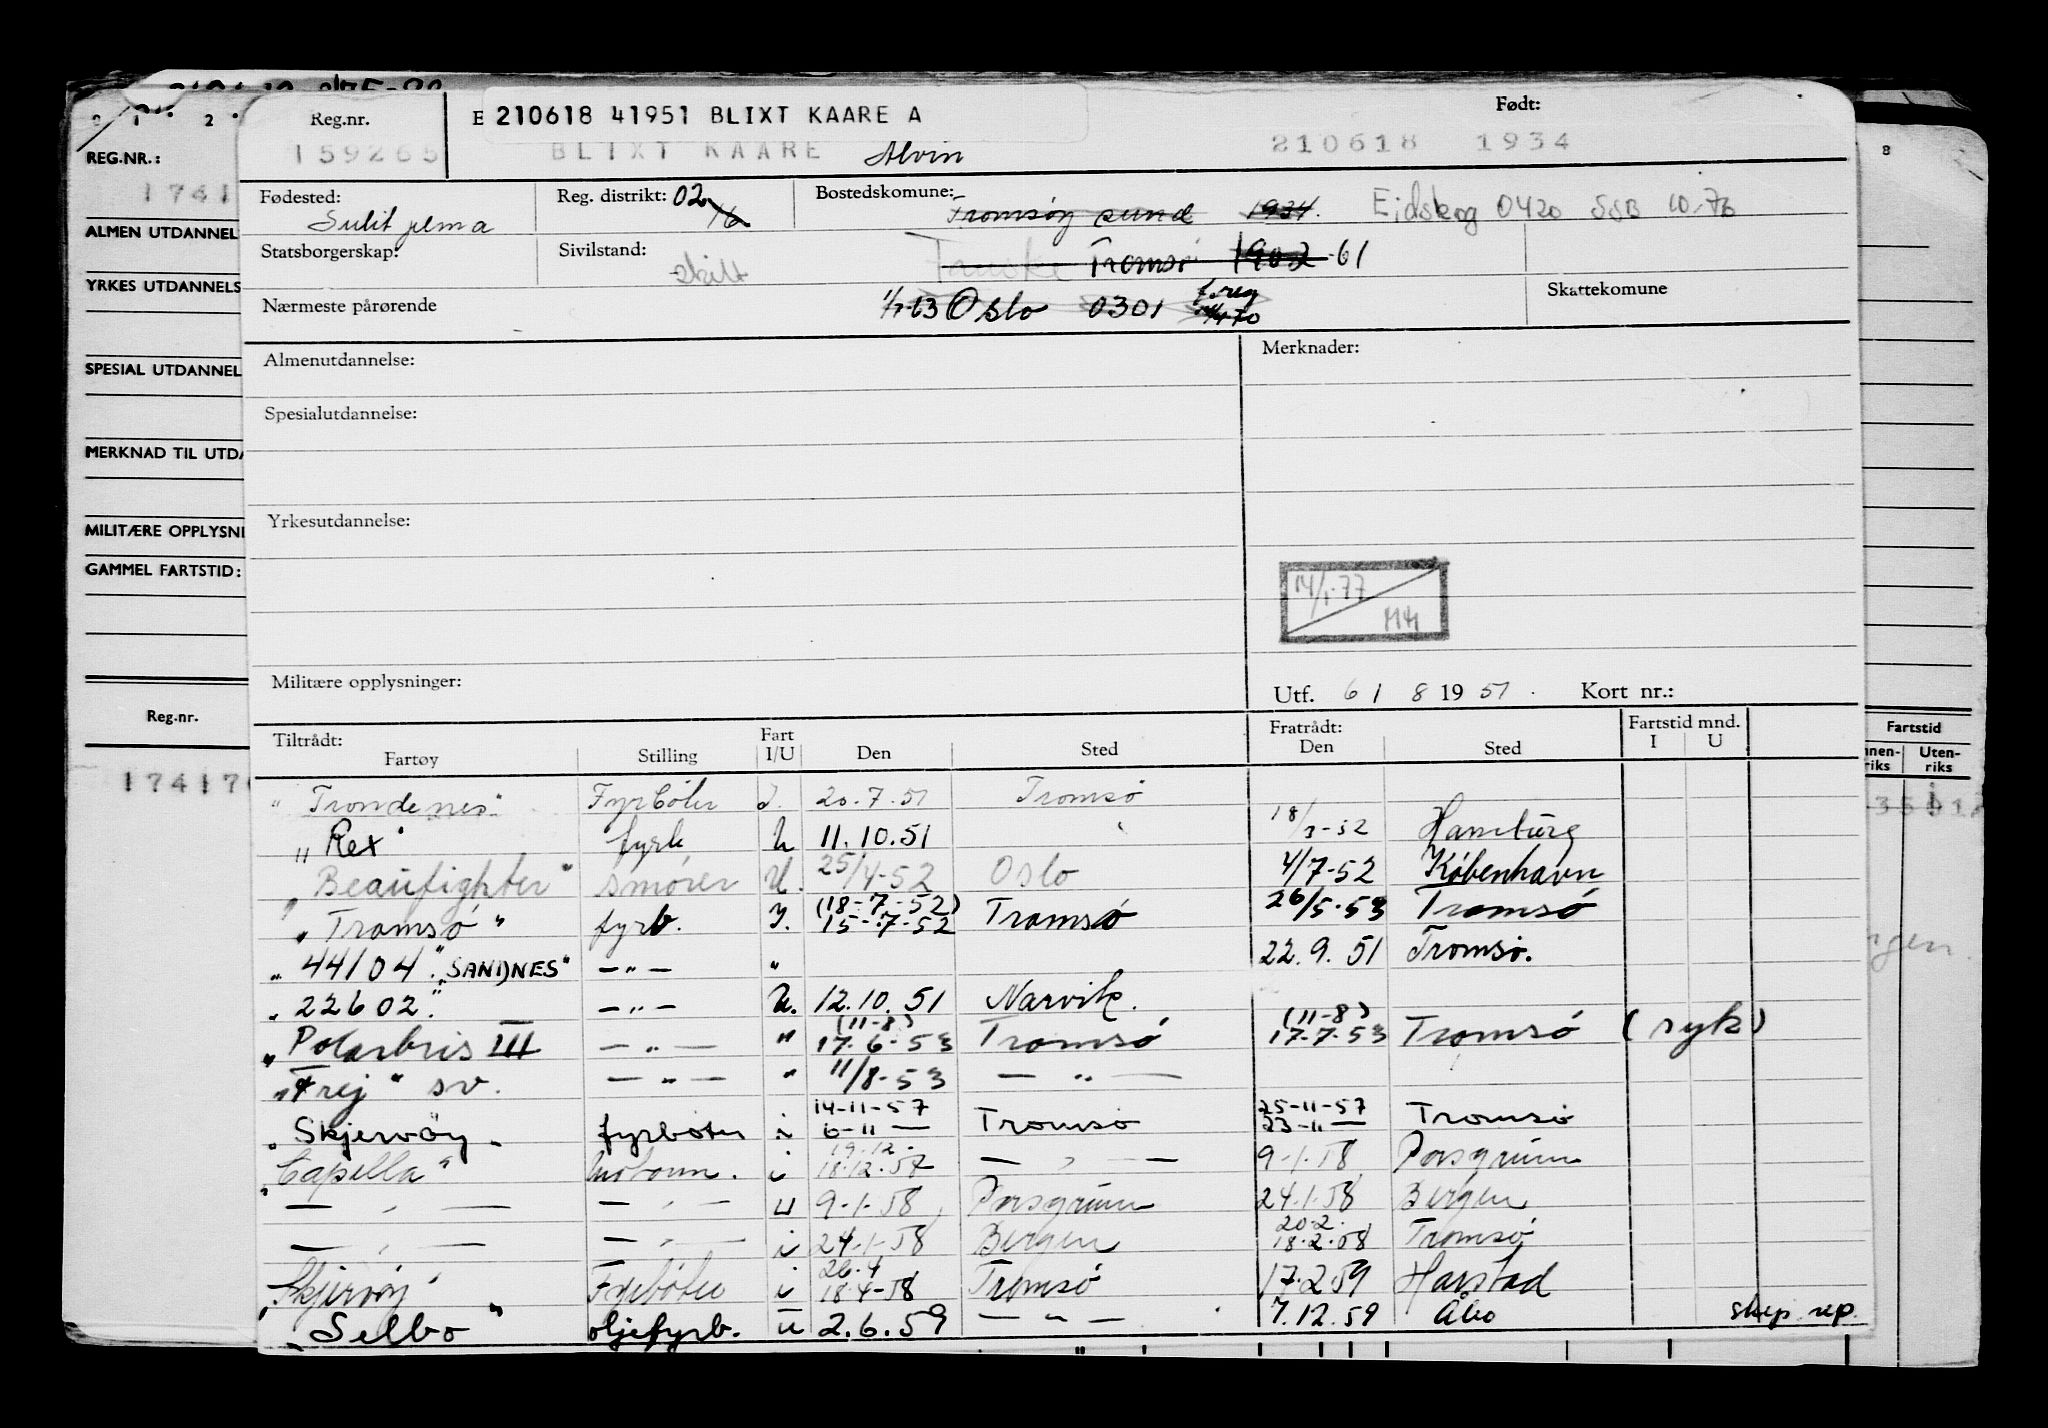 0 1 2
REG.NR.:
1741
ALMEN UTDANNEL
YRKES UTDANNELS
SPESIAL UTDANNEL
MERKNAD TIL UTDA
MILITÆRE OPPLYSNI
GAMMEL FARTSTID:
Reg.nr.
17417
Reg.nr. E 210618 41951 BLIXT KAARE A Født:
159265 BLIXT KAARE Alvin 210618 1934
Fødested: Sulitjelma Reg. distrikt: 02 16 Bostedskomune: Tromsøysund 1934. Eidskog 0420 SSB 10-76
Statsborgerskap: Sivilstand: skilt Fauske Tromsø 1902 -61
Nærmeste pårørende 1/7-63 Oslo 0301 Skattekomune
Almenutdannelse: Merknader:
Spesialutdannelse:
Yrkesutdannelse:
14/1-77
Militære opplysninger: Utf. 6 / 8 19 51. Kort nr.:
Tiltrådt: Fart Fratrådt: Fartstid mnd.
Fartøy Stilling I/U Den Sted Den Sted I U
"Trondenes" Fyrbøter I. 20.7.51 Tromsø
"Rex" fyrb U 11.10.51 " 18/3-52 Hamburg
"Beaufighter" smører U. 25/4-52 Oslo 4/7-52 København
"Tromsø" fyrb. I. (18-7-52) 15-7-52 Tromsø 26/5-53 Tromsø
"44104". "SANDNES" -"- " 22.9.51 Tromsø.
"22602". -"- U. 12.10.51 Narvik.
"Polarbris III -"- " (11-8) 17-6-53 Tromsø (11-8) 17-7-53 Tromsø (syk)
"Frej" sv. -"- " 11/8-53 -"-
"Skjervøy" fyrbøter i 14-11-57 6-11 - Tromsø 25-11-57 23-11 - Tromsø
"Capella" motorm. i 19.12. 18.12.57 -"- 9-1-58 Porsgrunn
-"- -"- U 9-1-58 Porsgrunn 24.1.58 Bergen
-"- -"- i 24-1-58 Bergen 20.2. 18.2.58 Tromsø
"Skjervøy" Fyrbøter i 26.4 18.4-58 Tromsø 17.2.59 Harstad
"Selbo" oljefyrb. U 2.6.59 -"- 7.12.59 Åbo skip. rep.
8
Fartstid
nnen-riks Uten-riks